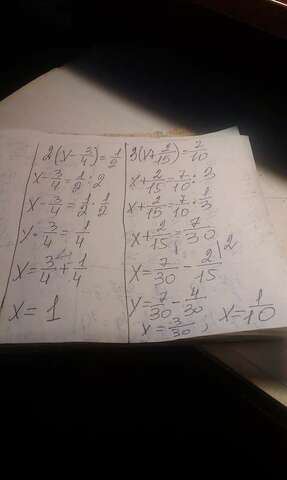 2(x-3/4)=1/2
x-3/4=1/2:2
x-3/4=1/2·1/2
x-3/4=1/4
x=3/4+1/4
x=1
3(x+2/15)=7/10
x+2/15=7/10:3
x+2/15=7/10·1/3
x+2/15=7/30
x=7/30-2/15\2
x=7/30-4/30
x=3/30; x=1/10